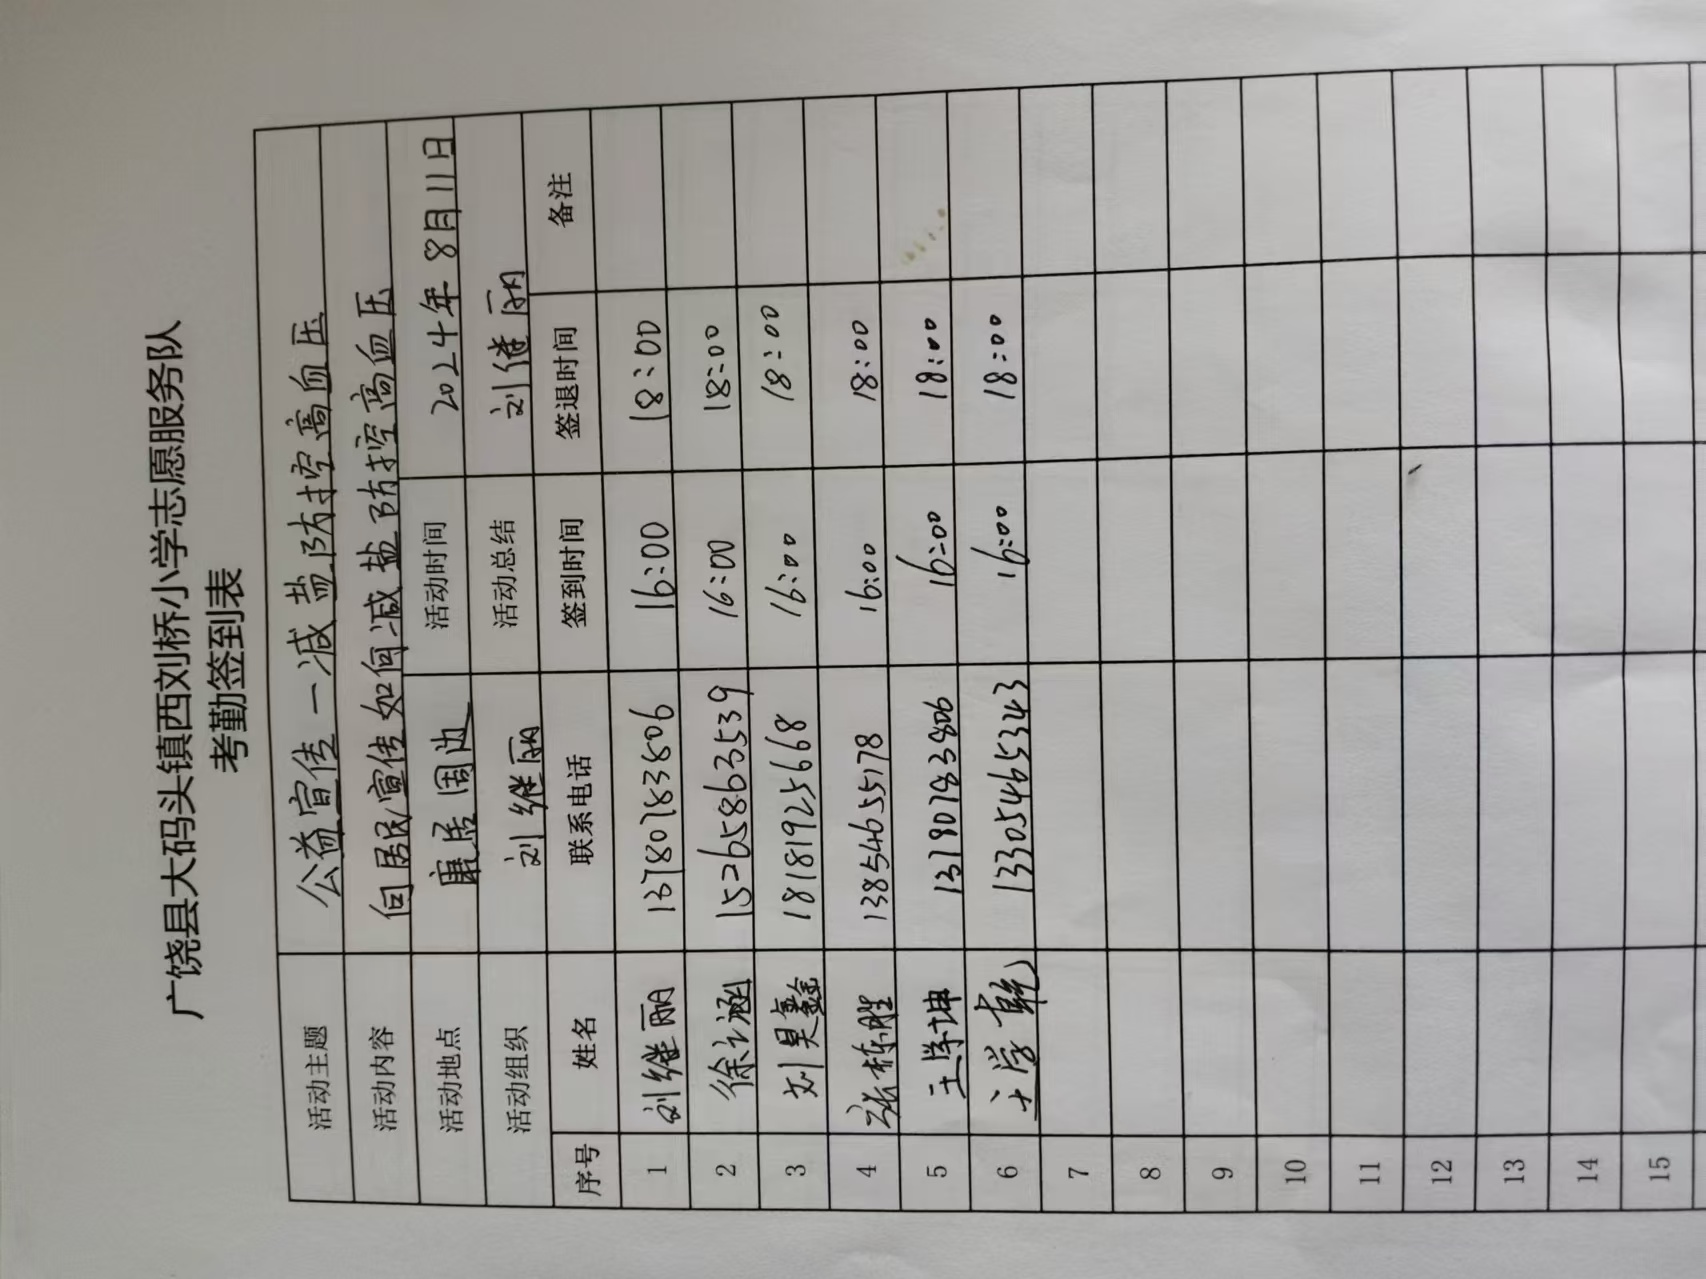 广饶县大码头镇西刘桥小学志愿服务队
考勤签到表
活动主题 公益宣传一减盐防控高血压
活动内容 向居民宣传如何减盐防控高血压
活动地点 康居周边 活动时间 2024年8月11日
活动组织 刘继丽 活动总结 刘继丽
序号 姓名 联系电话 签到时间 签退时间 备注
1 刘继丽 13780783806 16:00 18:00
2 徐涵 15265863539 16:00 18:00
3 刘昊鑫 18181925668 16:00 18:00
4 张栋胜 13854655178 16:00 18:00
5 王学坤 13780783806 16:00 18:00
6 王学乾 13305465343 16:00 18:00
7
8
9
10
11
12
13
14
15